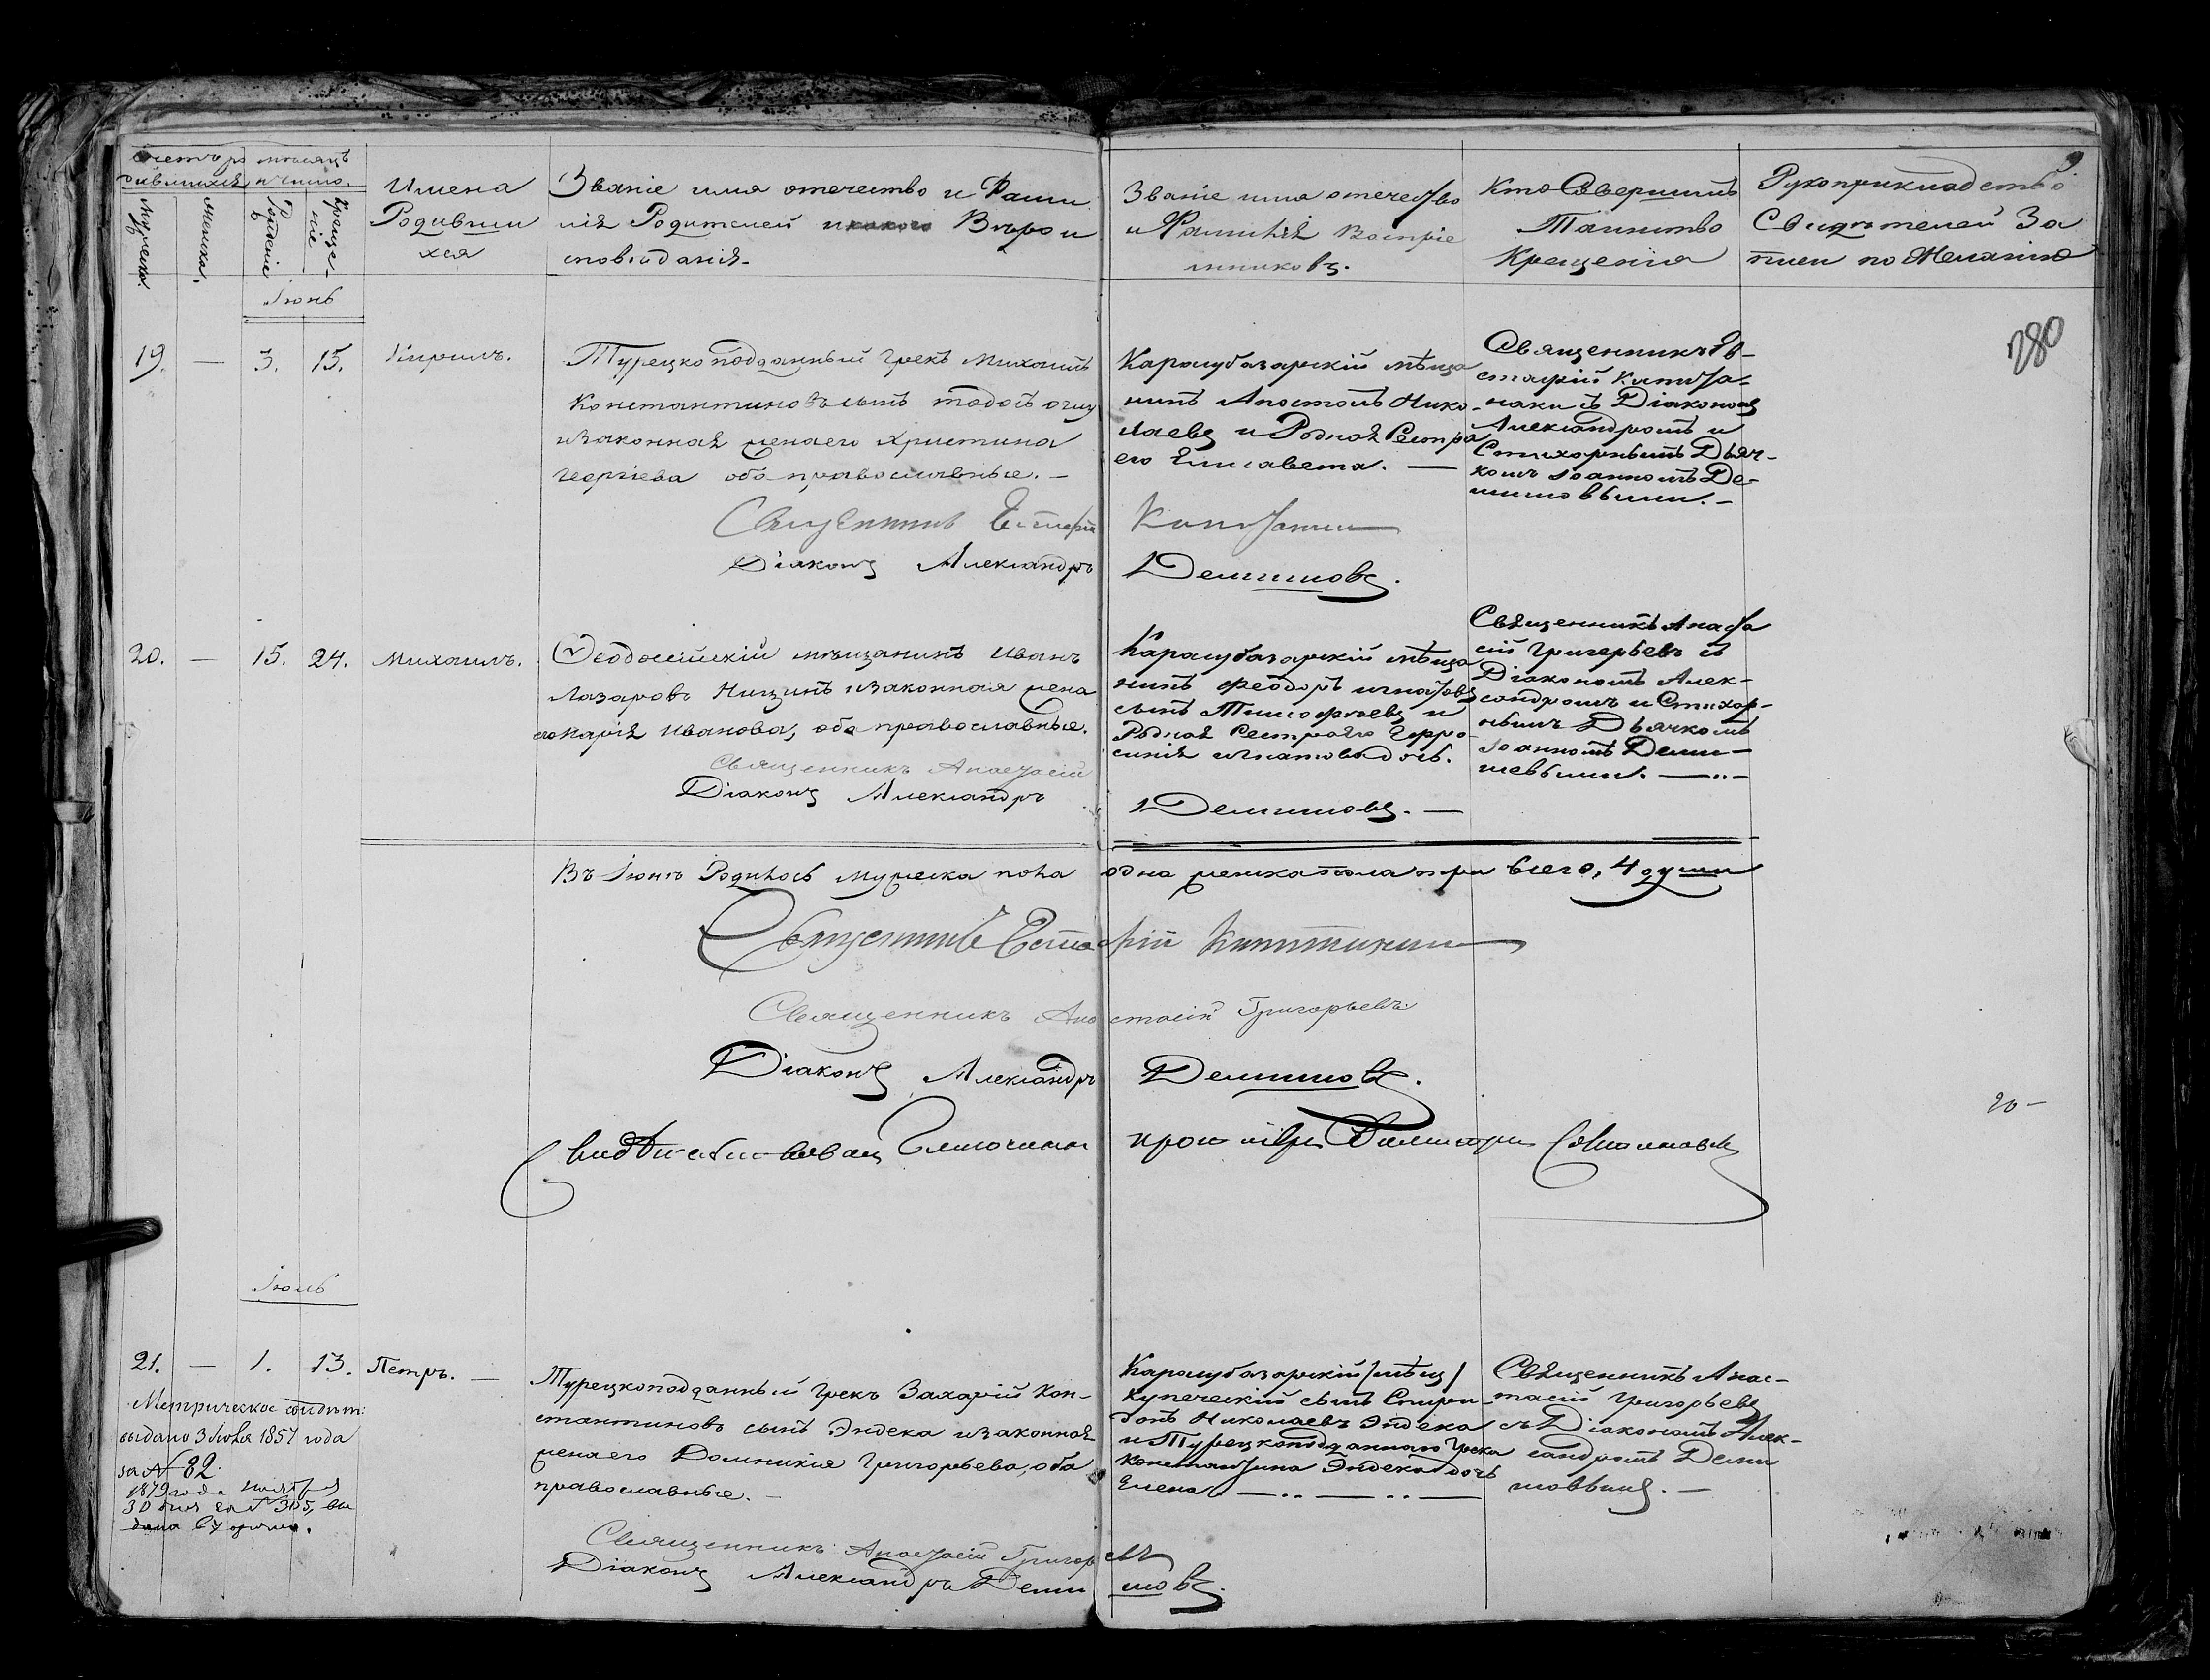 9
Счетъ ро
дившихся
мѣсяцъ
и число.
Мужеска.
Женска.
Рожденіе
Креще-
ніе
Имена
Родивши
хся
Званіе имя отечество и Фами
лія Родителей и какого Вѣрои
сповѣданія.
Званіе имя отечество
и Фамилія Воспріе
мниковъ.
Кто Совершилъ
Таинство
Крещенія
Рукоприкладство
Свидѣтелей За
писи по Желанію
280
Іюнь
19. — 3. 15. Кирилъ.
Турецкоподданный Грекъ Михаилъ
Константиновъ сынъ
и законная жена его Христина
Георгіева оба православные. —
Карасубазарскій мѣща
нинъ Апостолъ Нико-
лаевъ и Родная Сестра
его Елисавета. —
Священникъ Ев-
стафій
съ Діакономъ
Александромъ и
Стихарнымъ Дьяч-
комъ Іоанномъ Де-
мишовыми. —
Священникъ Евстафій
Діаконъ Александръ Демишовъ.
20. — 15. 24. Михаилъ.
Ѳеодосійскій мѣщанинъ Иванъ
Лазаровъ и законная жена
его Марія Иванова, оба православные.
Карасубазарскій мѣща
нинъ Феодоръ Игнатовъ
сынъ Тимофѣевъ и
Родная Сестра его Евфро-
синія Игнатова дочь.
Священникъ Анаста
сій Григорьевъ съ
Діакономъ Алек-
сандромъ и Стихар-
нымъ Дьячкомъ
Іоанномъ Деми-
шевыми. —
Священникъ Анастасій
Діаконъ Александръ Демишовъ. —
Въ Іюнѣ Родилось мужеска пола одна женска пола три всего, 4 души
Священникъ Евстафій
Священникъ Анастасій Григорьевъ.
Діаконъ Александръ Демишовъ.
20 —
Свидѣтельствовалъ Благочинный протоіерей
Іюль
21. — 1. 13. Петръ. —
Турецкоподданный Грекъ Захарій Кон-
стантиновъ сынъ Эндека и законная
жена его Домникія Григорьева, оба
православные. —
Карасубазарскій /мѣщ/
купеческій сынъ Спири-
донъ Николаевъ Эндека
и Турецкоподданнаго Грека
Константина Эндека дочь
Елена. —
Священникъ Анас-
тасій Григорьевъ
съ Діакономъ Алек-
сандромъ Деми
шовымъ. —
Метрическое свидѣт:
выдано 3 Іюля 1857 года
за № 82.
1879 года
30 дня за № 305, вы
дано вторично.
Священникъ Анастасій Григорьевъ
Діаконъ Александръ Демишовъ.